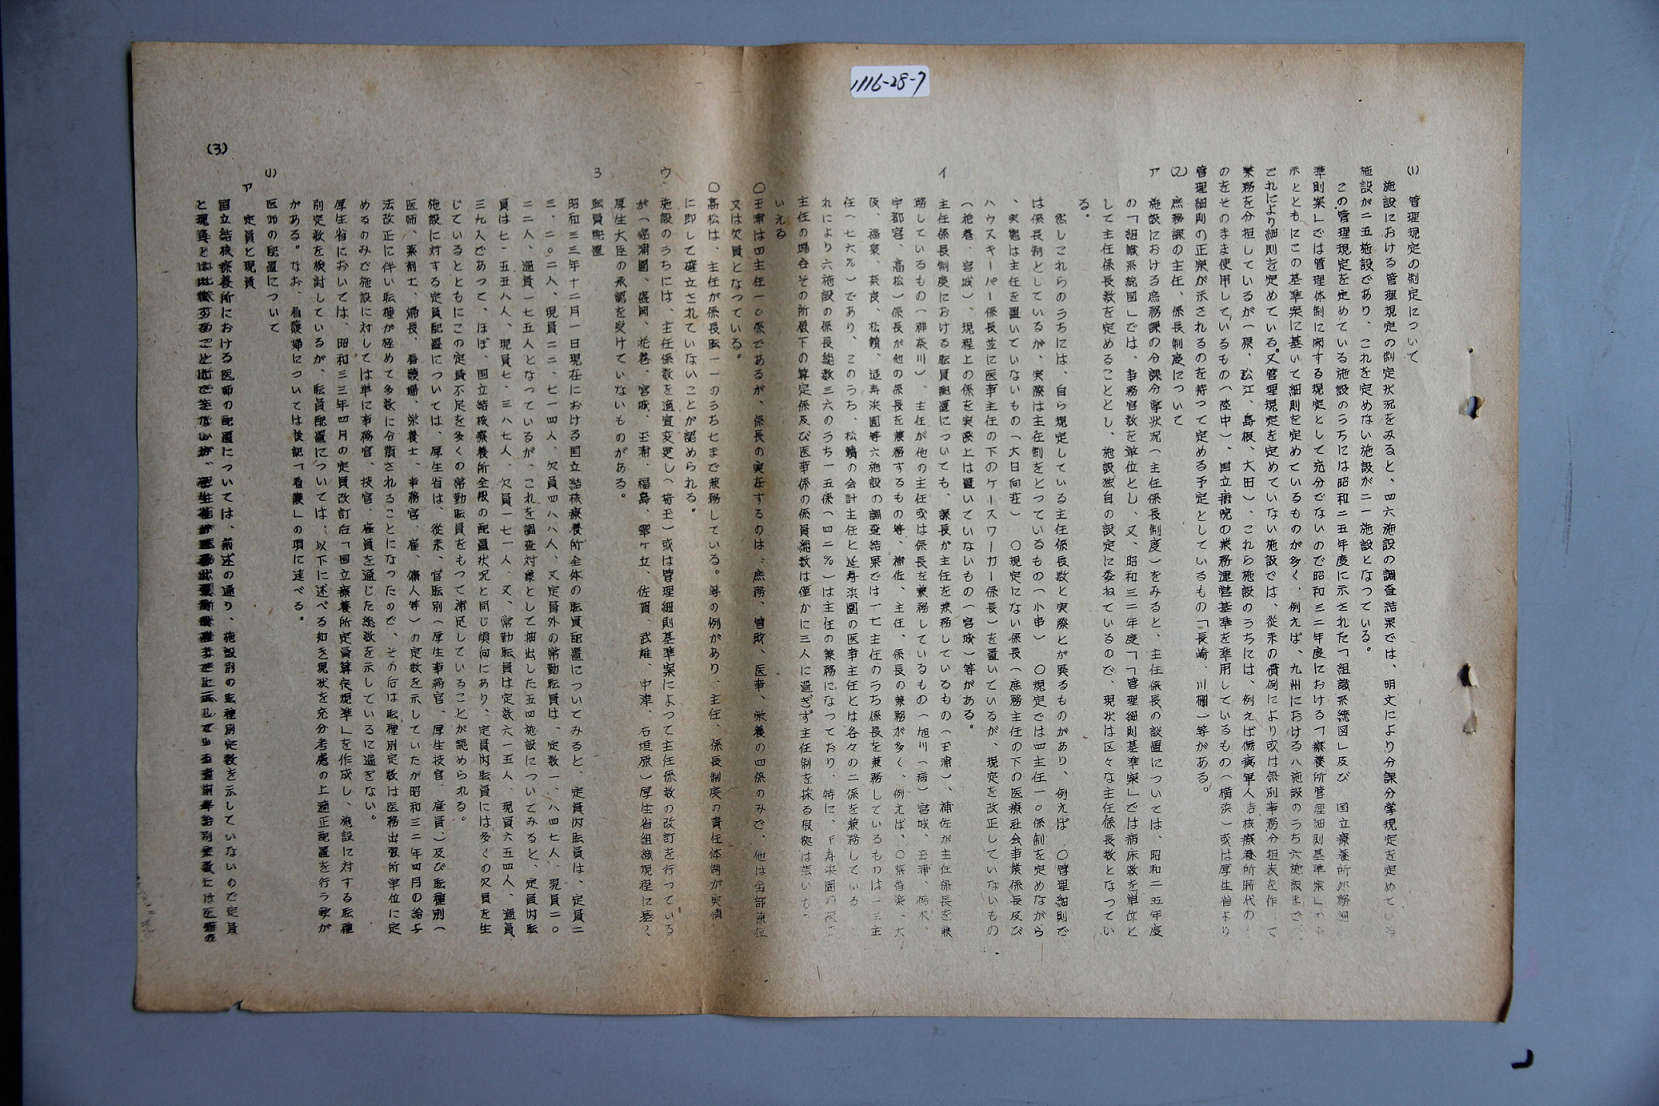 1116-28-7
(1) 管理規定の制定について
施設における管理規定の制定状況をみると、四六施設の調査結果では、明文により分課分掌規定を定めてい
施設が二五施設であり、これを定めない施設が二一施設となつている。
この管理規定を定めている施設のうちには昭和二五年度に示された「組織系統図」及び、国立療養所
準則案」では管理体制に関する規定として充分でないので昭和三二年度における「療養所管理細則基準案」
ホとともにこの基準案に基いて細則を定めているものが多く、例えば、九州における八施設のうち六施設まで
これにより細則を定めている。又管理規定を定めていない施設では、従来の慣例により或は係別事務分担表を作つて
業務を分担しているが(榎、松江、島根、大田)、これら施設のうちには、例えば傷痍軍人結核療養所時代の
のをそのまま使用しているもの(陸中)、国立病院の業務運営基準を準用しているもの(横浜)或は厚生省より
管理細則の正案が示されるのを待つて定める予定としているもの「長崎、川棚」等がある。
(2) 庶務課の主任、係長制度について
ア 施設における庶務課の分課分掌状況(主任係長制度)をみると、主任係長の設置については、昭和二五年度
の「組織系統図」では、事務官数を単位とし、又、昭和三二年度「「管理細則基準案」では病床数を単位と
して主任係長数を定めることとし、施設独自の設定に委ねているので、現状は区々な主任係長数となつてい
る。
然しこれらのうちには、自ら規定している主任係長数と実際とが異るものがあり、例えば ○管理細則で
は係長制としているが、実際は主任制をとつているもの(小串) ○規定では四主任一○係制を定めながら
、実態は主任を置いていないもの(大日向荘) ○規定にない係長(庶務主任の下の医療社会事業係長及び
ハウスキーパー係長並に医事主任の下のケースワーカー係長)を置いているが、規定を改正していないもの
(池巻、宮城)、現程上の係を実際上は置いていないもの(宮城)等がある。
イ 主任係長制度における職員配置についても、課長が主任を兼務しているもの(王浦)、補佐が主任係長を兼
務しているもの(神奈川)、主任が他の主任或は係長を兼務しているもの(旭川(病)宮城、王浦、栃木、
宇都宮、高松)係長が他の係長を兼務するもの等、補佐、主任、係長の兼務が多く、例えば、○紫香楽、大
阪、福泉、奈良、松籟、延寿浜園等六施設の調査結果では一七主任のうち係長を兼務しているものは一三主
任(七六%)であり、このうち、松籟の会計主任と延寿浜園の医事主任とは各々の二係を兼務している
れにより六施設の係長総数三六のうち一五係(四二%)は主任の兼務になつており、特に、千寿浜園の
主任の場合その所管下の算定係及び医事係の係員総数は僅かに三人に過ぎず主任制を採る根拠は薄いも
いえる
○王浦は四主任一○係であるが、係長の実在するのは、庶務、営繕、医事、栄養の四係のみで、他は全部兼任
又は欠員となつている。
○高松は、主任が係長職一一のうち七まで兼務している。等の例があり、主任、係長制度の責任体制が実情
に即して確立されていないことが認められる。
ウ 施設のうちには、主任係数を適宜変更し(再王)或は管理細則基準案によつて主任係数の改訂を行つている
が(福浦園、盛岡、池巻、宮城、玉浦、福島、霧ケ丘、佐賀、武雄、中津、石垣原)厚生省組織規程に基く
厚生大臣の承認を受けていないものがある。
3 職員配置
昭和三三年十二月一日現在における国立結核療養所全体の職員配置についてみると、定員内職員は、定員二
三、二○二人、現員二二、七一四人、欠員四八八人、又定員外の常勤職員は、定数一、八四七人、現員二○
二二人、過員一七五人となつているが、これを調査対象として抽出した五四施設についてみると、定員内職
員は七、五五八人、現員七、三八七人、欠員一七一人、又、常勤職員は定数六一五人、現員六五四人、過員
三九人であつて、ほぼ、国立結核療養所全般の配置状況と同じ傾向にあり、定員内職員には多くの欠員を生
じているとともにこの定員不足を多くの常勤職員をもつて補足していることが認められる。
施設に対する定員配置については、厚生省は、従来、官職別(厚生事務官、厚生技官、雇員)及び職種別(
医師、薬剤士、婦長、看護婦、栄養士、事務官、雇、傭人等)の定数を示していたが昭和三二年四月の給与
法改正に伴い職種が極めて多数に分類されることになつたので、その后は職種別定数は医務出張所単位に定
めるのみで施設に対しては単に事務官、技官、雇員を通じた総数を示しているに過ぎない。
厚生省においては、昭和三三年四月の定員改訂后「国立療養所定員算定規準」を作成し、施設に対する職種
別定数を検討しているが、職員配置については、以下に述べる如き現状を充分考慮の上適正配置を行う要が
がある。なお、看護婦については後記「看護」の項に述べる。
(1) 医師の配置について
ア 定員と現員
国立結核療養所における医師の配置については、前述の通り、施設別の職種別定数を示していないので定員
と現員とは比較することは出来ないが、
(3)